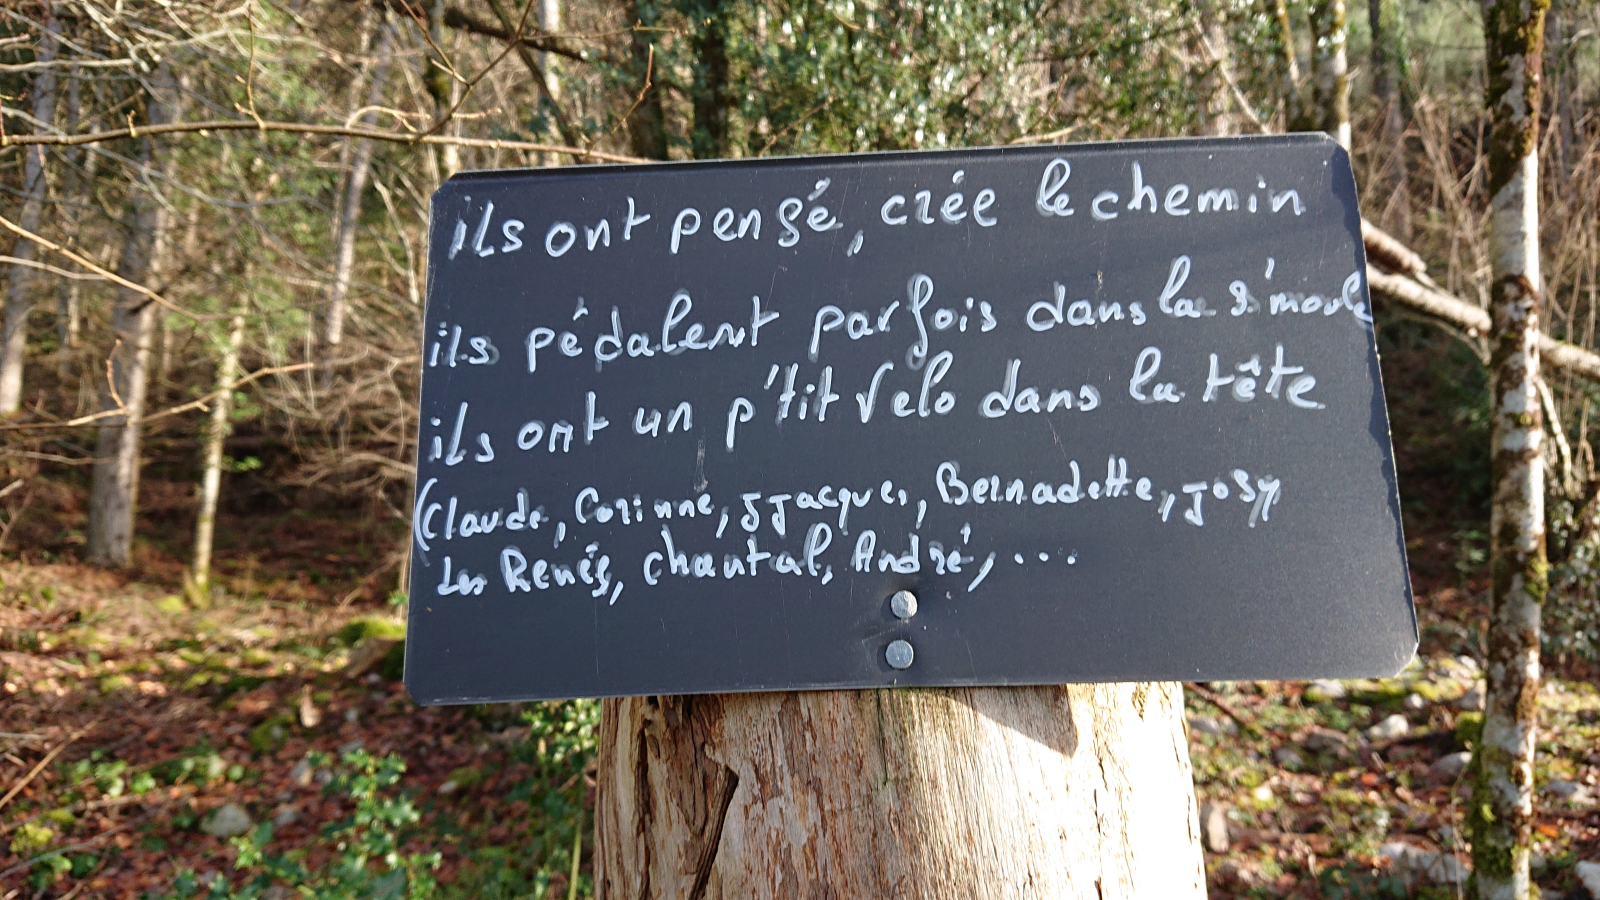 ils ont pensé, crée le chemin
ils pédalent parfois dans la s'moule
ils ont un p'tit velo dans la tête
(Claude, Corinne, JJacques, Bernadette, Josy
Les Renés, chantal, André, ...